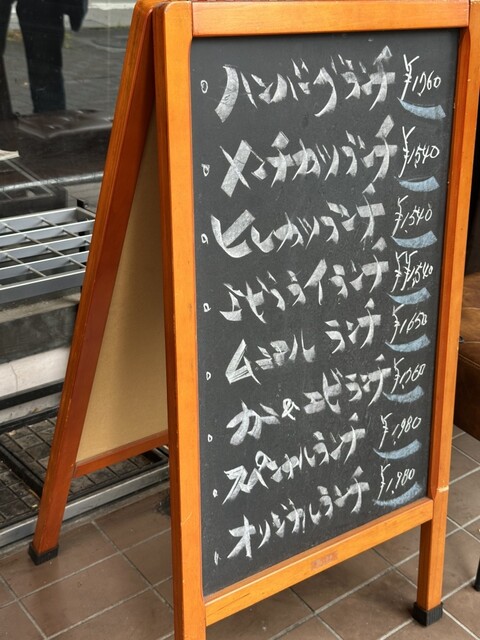 ハンバーグランチ ¥1,760
メンチカツランチ ¥1,540
ヒレカツランチ ¥1,540
エビフライランチ ¥1,540
ムニエル ランチ ¥1,650
カニ&エビランチ ¥1,760
スペシャルランチ ¥1,980
オリジナルランチ ¥1,980